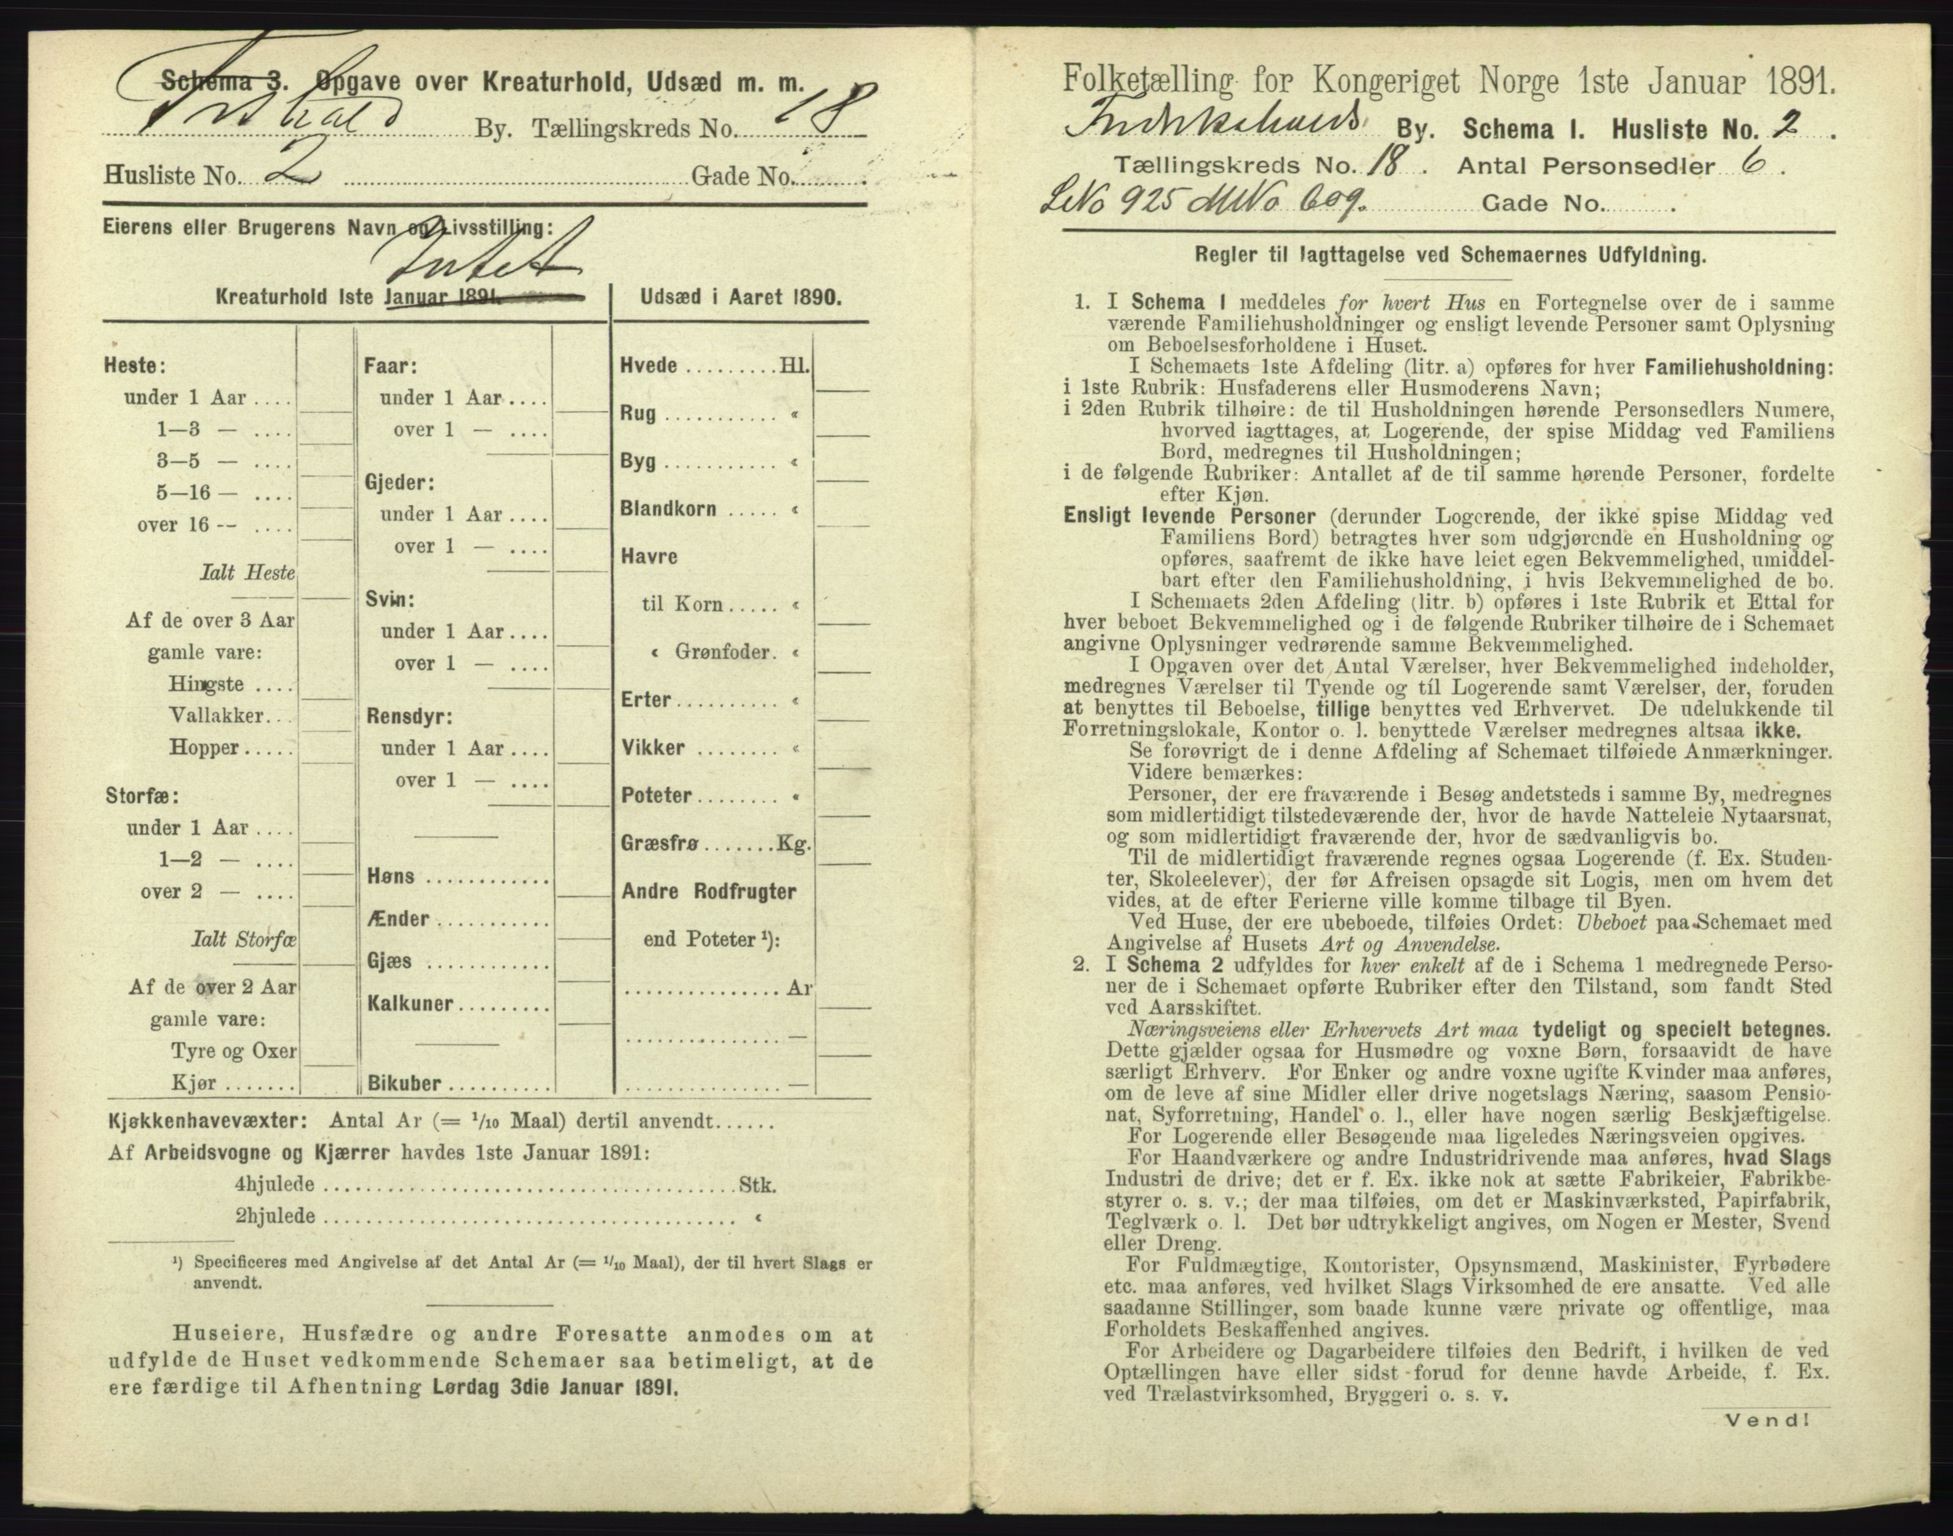 Schema 3. Opgave over Kreaturhold, Udsæd m. m.
Frhald By. Tællingskreds No. 18
Husliste No. 2 Gade No.
Eierens eller Brugerens Navn og Livsstilling:
Intet
Kreaturhold 1ste Januar 1891.
Heste:
under 1 Aar ....
1—3 — ....
3—5 — ....
5—16 — ....
over 16 -- ....
Ialt Heste
Af de over 3 Aar
gamle vare:
Hingste ....
Vallakker...
Hopper.....
Storfæ:
under 1 Aar ....
1—2 — ....
over 2 — ....
Ialt Storfæ
Af de over 2 Aar
gamle vare:
Tyre og Oxer
Kjør .......
Faar:
under 1 Aar ....
over 1 — ....
Gjeder:
under 1 Aar ....
over 1 — ....
Svin:
under 1 Aar ....
over 1 — ....
Rensdyr:
under 1 Aar ....
over 1 — ....
Høns ............
Ænder ...........
Gjæs ............
Kalkuner.........
Bikuber ..........
Udsæd i Aaret 1890.
Hvede .........Hl.
Rug ........... «
Byg ........... «
Blandkorn ..... «
Havre
til Korn..... «
« Grønfoder. «
Erter.......... «
Vikker ........ «
Poteter ........ «
Græsfrø .......Kg.
Andre Rodfrugter
end Poteter ¹):
...............Ar
............... —
............... —
Kjøkkenhavevæxter: Antal Ar (= 1/10 Maal) dertil anvendt......
Af Arbeidsvogne og Kjærrer havdes 1ste Januar 1891:
4hjulede ........................................Stk.
2hjulede ........................................ «
¹) Specificeres med Angivelse af det Antal Ar (= 1/10 Maal), der til hvert Slags er
anvendt.
Huseiere, Husfædre og andre Foresatte anmodes om at
udfylde de Huset vedkommende Schemaer saa betimeligt, at de
ere færdige til Afhentning Lørdag 3die Januar 1891.
Folketælling for Kongeriget Norge 1ste Januar 1891.
Fredrikshalds By. Schema 1. Husliste No. 2.
Tællingskreds No. 18. Antal Personsedler 6.
LNo 925 MNo 609. Gade No. .
Regler til Iagttagelse ved Schemaernes Udfyldning.
1. I Schema 1 meddeles for hvert Hus en Fortegnelse over de i samme
værende Familiehusholdninger og ensligt levende Personer samt Oplysning
om Beboelsesforholdene i Huset.
I Schemaets 1ste Afdeling (litr. a) opføres for hver Familiehusholdning:
i 1ste Rubrik: Husfaderens eller Husmoderens Navn;
i 2den Rubrik tilhøire: de til Husholdningen hørende Personsedlers Numere,
hvorved iagttages, at Logerende, der spise Middag ved Familiens
Bord, medregnes til Husholdningen;
i de følgende Rubriker: Antallet af de til samme hørende Personer, fordelte
efter Kjøn.
Ensligt levende Personer (derunder Logerende, der ikke spise Middag ved
Familiens Bord) betragtes hver som udgjørende en Husholdning og
opføres, saafremt de ikke have leiet egen Bekvemmelighed, umiddel-
bart efter den Familiehusholdning, i hvis Bekvemmelighed de bo.
I Schemaets 2den Afdeling (litr. b) opføres i 1ste Rubrik et Ettal for
hver beboet Bekvemmelighed og i de følgende Rubriker tilhøire de i Schemaet
angivne Oplysninger vedrørende samme Bekvemmelighed.
I Opgaven over det Antal Værelser, hver Bekvemmelighed indeholder,
medregnes Værelser til Tyende og til Logerende samt Værelser, der, foruden
at benyttes til Beboelse, tillige benyttes ved Erhvervet. De udelukkende til
Forretningslokale, Kontor o. l. benyttede Værelser medregnes altsaa ikke.
Se forøvrigt de i denne Afdeling af Schemaet tilføiede Anmærkninger.
Videre bemærkes:
Personer, der ere fraværende i Besøg andetsteds i samme By, medregnes
som midlertidigt tilstedeværende der, hvor de havde Natteleie Nytaarsnat,
og som midlertidigt fraværende der, hvor de sædvanligvis bo.
Til de midlertidigt fraværende regnes ogsaa Logerende (f. Ex. Studen-
ter, Skoleelever), der før Afreisen opsagde sit Logis, men om hvem det
vides, at de efter Ferierne ville komme tilbage til Byen.
Ved Huse, der ere ubeboede, tilføies Ordet: Ubeboet paa Schemaet med
Angivelse af Husets Art og Anvendelse.
2. I Schema 2 udfyldes for hver enkelt af de i Schema 1 medregnede Perso-
ner de i Schemaet opførte Rubriker efter den Tilstand, som fandt Sted
ved Aarsskiftet.
Næringsveiens eller Erhvervets Art maa tydeligt og specielt betegnes.
Dette gjælder ogsaa for Husmødre og voxne Børn, forsaavidt de have
særligt Erhverv. For Enker og andre voxne ugifte Kvinder maa anføres,
om de leve af sine Midler eller drive nogetslags Næring, saasom Pensio-
nat, Syforretning, Handel o. l., eller have nogen særlig Beskjæftigelse.
For Logerende eller Besøgende maa ligeledes Næringsveien opgives.
For Haandværkere og andre Industridrivende maa anføres, hvad Slags
Industri de drive; det er f. Ex. ikke nok at sætte Fabrikeier, Fabrikbe-
styrer o. s. v.; der maa tilføies, om det er Maskinværksted, Papirfabrik,
Teglværk o. l. Det bør udtrykkeligt angives, om Nogen er Mester, Svend
eller Dreng.
For Fuldmægtige, Kontorister, Opsynsmænd, Maskinister, Fyrbødere
etc. maa anføres, ved hvilket Slags Virksomhed de ere ansatte. Ved alle
saadanne Stillinger, som baade kunne være private og offentlige, maa
Forholdets Beskaffenhed angives.
For Arbeidere og Dagarbeidere tilføies den Bedrift, i hvilken de ved
Optællingen have eller sidst forud for denne havde Arbeide, f. Ex.
ved Trælastvirksomhed, Bryggeri o. s. v.
Vend!